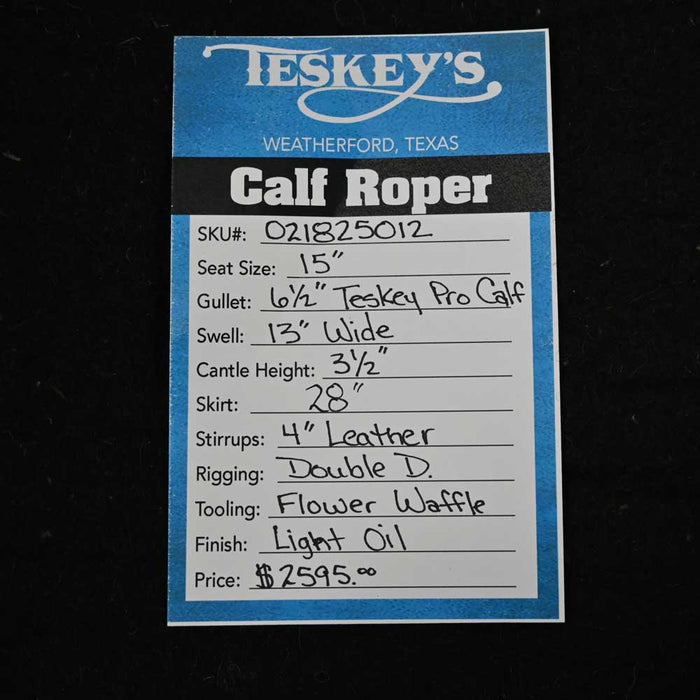 TESKEY'S
WEATHERFORD, TEXAS
Calf Roper
SKU#: 021825012
Seat Size: 15"
Gullet: 6½" Teskey Pro Calf
Swell: 13" Wide
Cantle Height: 3½"
Skirt: 28"
Stirrups: 4" Leather
Rigging: Double D.
Tooling: Flower Waffle
Finish: Light Oil
Price: $2595.00